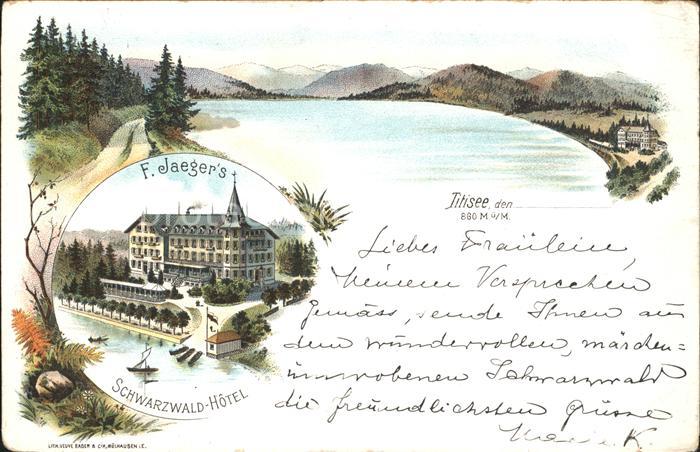 F. Jaeger's
SCHWARZWALD-HÔTEL
Titisee, den
860 M.Ü/M.
Liebes Fräulein,
Meinem Versprechen
gemäss, sende Ihnen aus
dem wundervollen, märchen=
umwobenen Schwarzwald
die freundlichsten Grüsse
K.
LITH. VEUVE BADER & CIE, MÜLHAUSEN I.E.